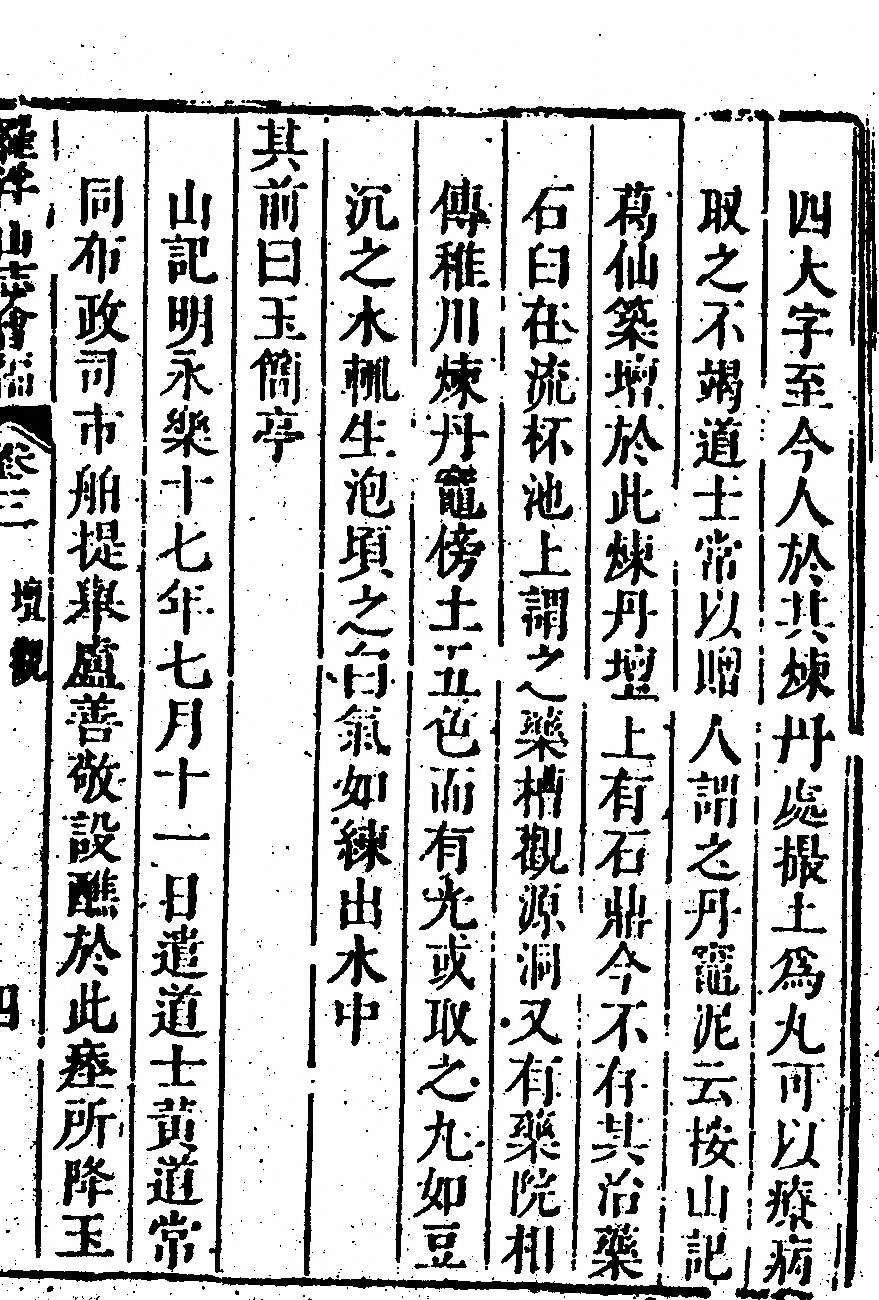 四大字至今人於其煉丹處撮土爲丸可以療病
取之不竭道士常以贈人謂之丹竈泥云按山記
葛仙築壇於此煉丹壇上有石鼎今不存其治藥
石臼在流杯池上謂之藥槽觀源洞又有藥院相
傳稚川煉丹竈傍土五色而有光或取之丸如豆
沉之水輒生泡頃之白氣如練出水中
其前曰玉簡亭
山記明永樂十七年七月十一日遣道士黃道常
同布政司市舶提舉盧善敬設醮於此壅所降玉
羅浮山志會編 卷三 壇觀 四